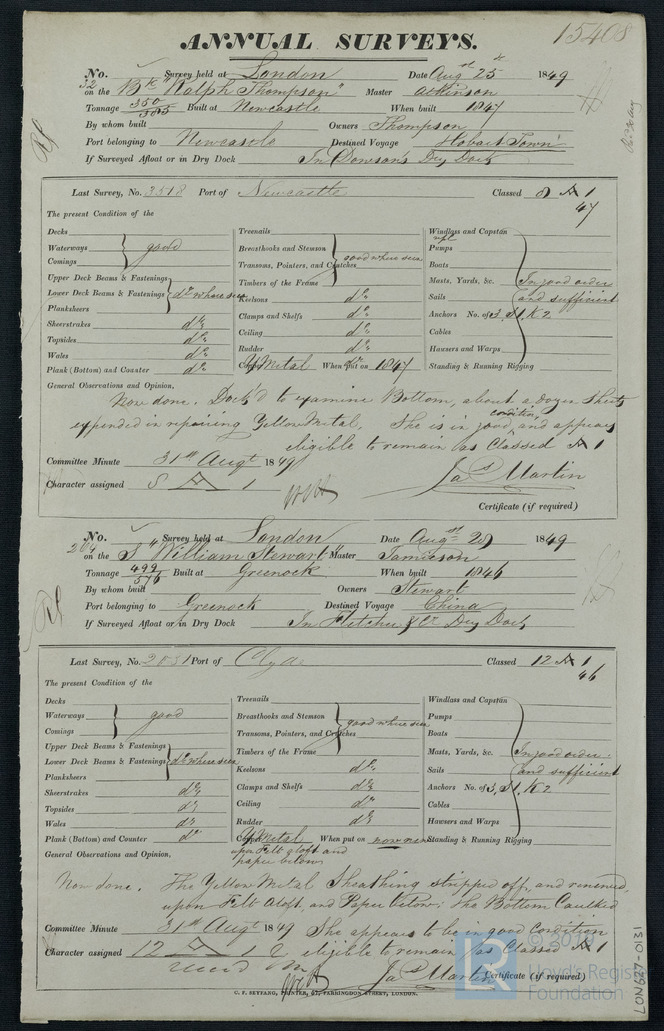 15408
ANNUAL SURVEYS.
No. 32 Survey held at London Date Augst 25th 1849
on the Bk "Ralph Thompson" Master Atkinson
Tonnage 350/305 Built at Newcastle When built 1847
By whom built Owners Thompson
Port belonging to Newcastle Destined Voyage Hobart Town
If Surveyed Afloat or in Dry Dock In Dowson's Dry Dock
Last Survey, No. 3518 Port of Newcastle Classed 8 A 1
47
The present Condition of the
Decks
Waterways good
Comings
Upper Deck Beams & Fastenings
Lower Deck Beams & Fastenings do where seen
Planksheers
Sheerstrakes do
Topsides do
Wales do
Plank (Bottom) and Counter do
Treenails
Breasthooks and Stemson good where seen
Transoms, Pointers, and Crutches
Timbers of the Frame
Keelsons do
Clamps and Shelfs do
Ceiling do
Rudder do
Copper Y Metal When put on 1847
Windlass and Capstan
Pumps
Boats
Masts, Yards, &c. In good order
Sails and sufficient
Anchors No. of 3, S1, K2
Cables
Hawsers and Warps
Standing & Running Rigging
General Observations and Opinion,
Now done. Dock'd to examine Bottom, about a dozen Sheets
expended in repairing Yellow Metal. She is in good condition, and appears
eligible to remain as Classed A 1
Committee Minute 31st Augt 1849
Jas Martin
Character assigned 8 A 1
Certificate (if required)
No. 204 Survey held at London Date Augst 28 1849
on the S "William Stewart" Master Jamieson
Tonnage 499/576 Built at Greenock When built 1846
By whom built Owners Stewart
Port belonging to Greenock Destined Voyage China
If Surveyed Afloat or in Dry Dock In Fletcher & Co Dry Dock
Last Survey, No. 2831 Port of Clyde Classed 12 A 1
46
The present Condition of the
Decks
Waterways good
Comings
Upper Deck Beams & Fastenings
Lower Deck Beams & Fastenings do where seen
Planksheers
Sheerstrakes do
Topsides do
Wales do
Plank (Bottom) and Counter do
Treenails
Breasthooks and Stemson good where seen
Transoms, Pointers, and Crutches
Timbers of the Frame
Keelsons do
Clamps and Shelfs do
Ceiling do
Rudder do
Copper Y Metal When put on now new
upon Felt aloft and
paper below
Windlass and Capstan
Pumps
Boats
Masts, Yards, &c. In good order
Sails and sufficient
Anchors No. of 3, S1, K2
Cables
Hawsers and Warps
Standing & Running Rigging
General Observations and Opinion,
Now done. The Yellow Metal Sheathing stripped off, and renewed,
upon Felt Aloft and Paper below; the Bottom Caulked
Committee Minute 31st Augt 1849 She appears to be in good condition
Character assigned 12 A 1 & eligible to remain as Classed A 1
Jas Martin Certificate (if required)
C. F. SEYFANG, PRINTER, 57, FARRINGDON STREET, LONDON.
LON627-0131
LR © 2019
Lloyd's Register
Foundation